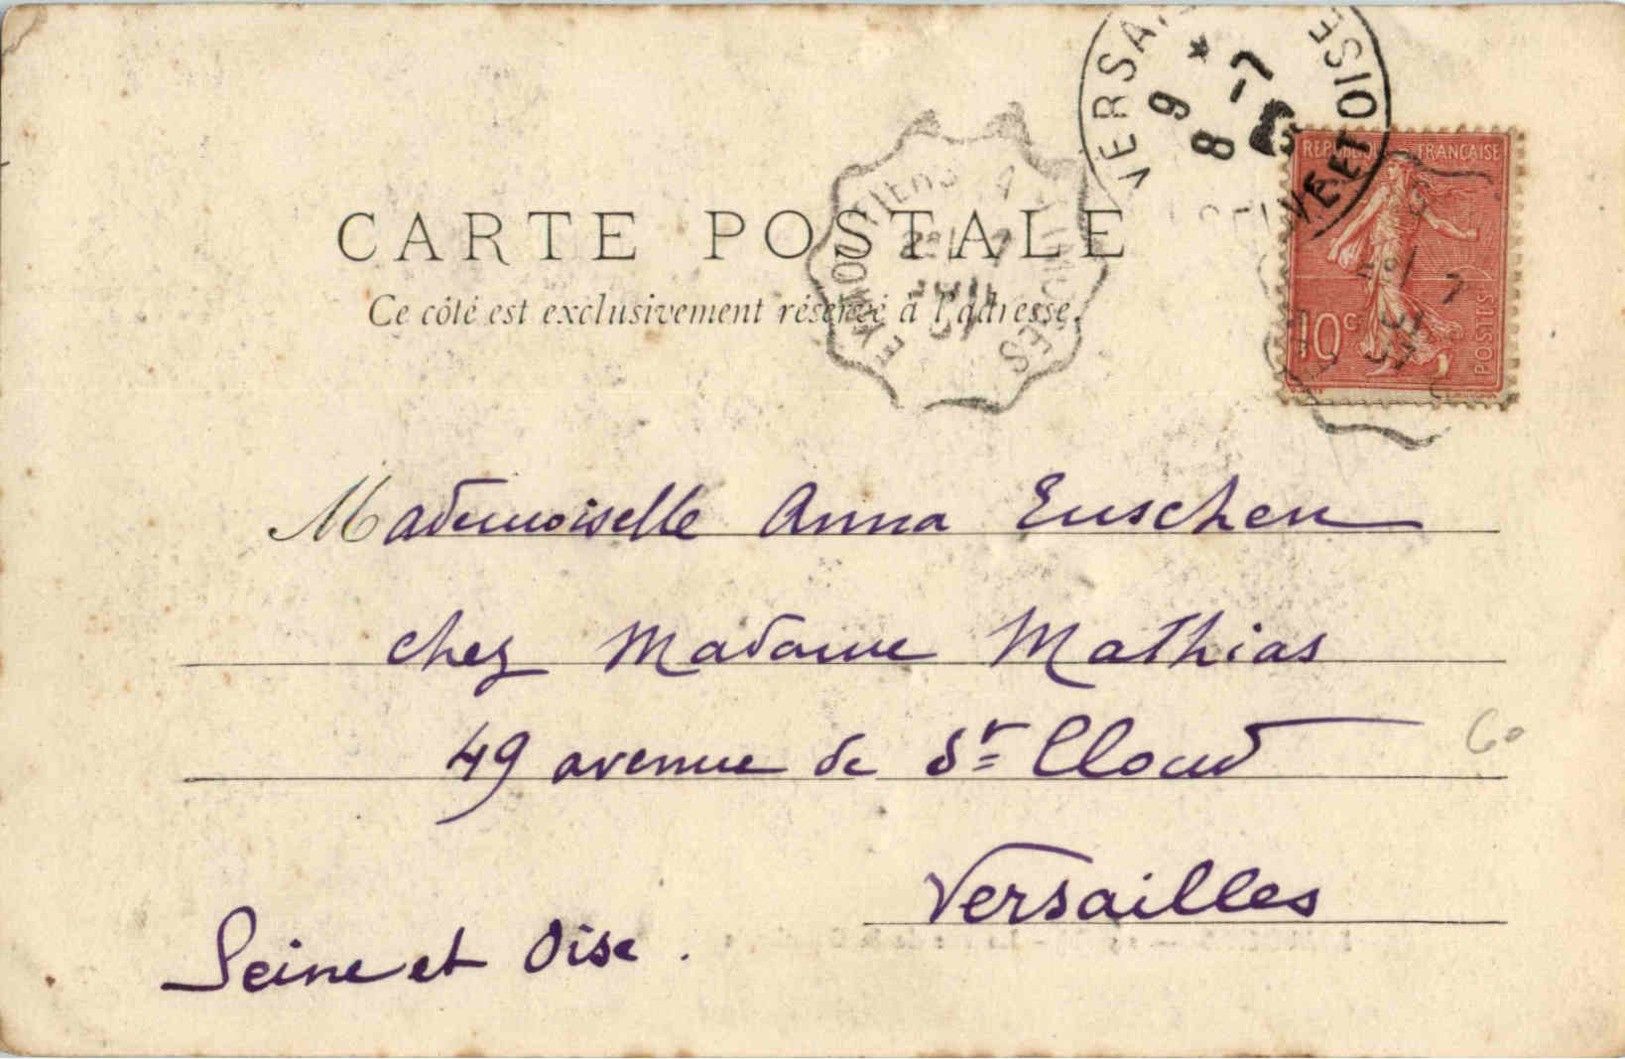 VERSAI
SEINE ET OISE
9 *
8 -7
REPUBLIQUE FRANCAISE
10 c.
POSTES
CARTE POSTALE
Ce côté est exclusivement réservé à l'adresse.
EYMOUTIERS A LIMOGES
Mademoiselle Anna Euschen
chez Madame Mathias
49 avenue de St Cloud
60
Versailles
Seine et Oise.